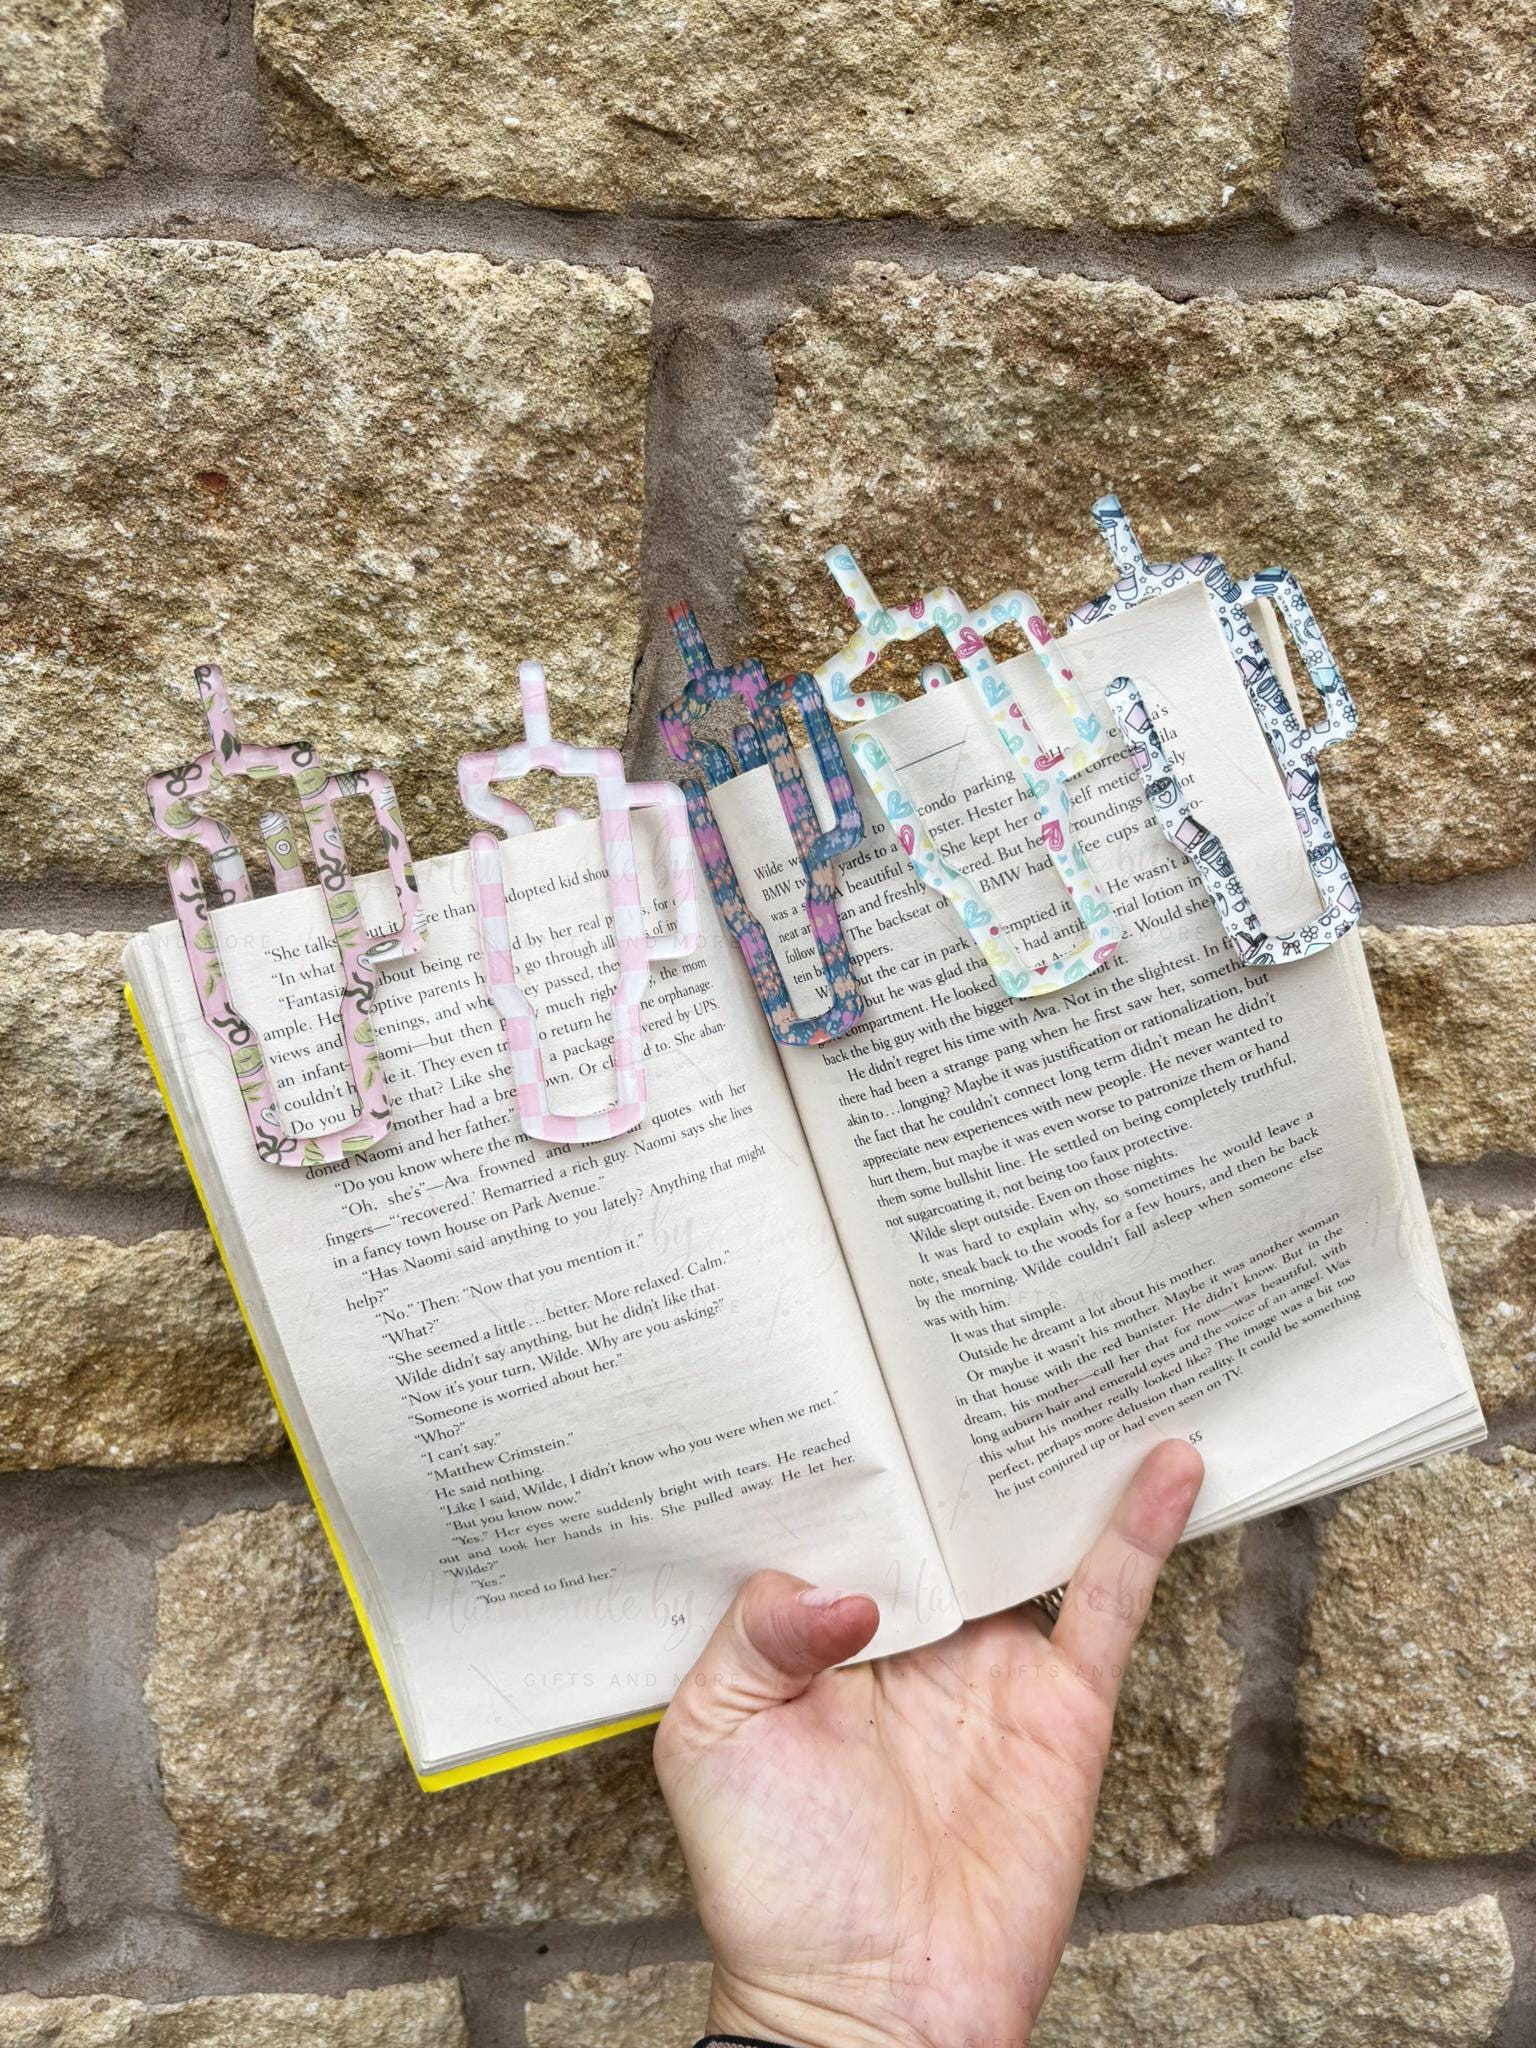 "She talks but it more than adopted kid shou
"In what d by her real p s, for
"Fantasiz about being re go through all s of in
ample. He ptive parents h they passed, they
views and enings, and whe much righ ng, the mom
an infant- aomi—but then p o return he ne orphanage.
couldn't h e it. They even tr a package vered by UPS.
Do you b ve that? Like she own. Or cl d to. She aban-
doned Naomi and her father." mother had a bre
"Do you know where the m
"Oh, she's"—Ava frowned and made air quotes with her
fingers—"'recovered.' Remarried a rich guy. Naomi says she lives
in a fancy town house on Park Avenue."
"Has Naomi said anything to you lately? Anything that might
help?"
"No." Then: "Now that you mention it."
"What?"
"She seemed a little . . . better. More relaxed. Calm."
Wilde didn't say anything, but he didn't like that.
"Now it's your turn, Wilde. Why are you asking?"
"Someone is worried about her."
"Who?"
"I can't say."
"Matthew Crimstein."
He said nothing.
"Like I said, Wilde, I didn't know who you were when we met."
"But you know now."
"Yes." Her eyes were suddenly bright with tears. He reached
out and took her hands in his. She pulled away. He let her.
"Wilde?"
"Yes."
"You need to find her."
54
Wilde w yards to a condo parking
BMW tw A beautiful s pster. Hester ha
was a s an and freshly She kept her self metic sly
neat ar The backseat of ered. But he roundings
follow appers. BMW had fee cups
tein ba but the car in park emptied it He wasn't a
but he was glad tha had antib rial lotion in
compartment. He looked Would she
back the big guy with the bigger bt it.
He didn't regret his time with Ava. Not in the slightest. In f
there had been a strange pang when he first saw her, someth
akin to . . . longing? Maybe it was justification or rationalization, but
the fact that he couldn't connect long term didn't mean he didn't
appreciate new experiences with new people. He never wanted to
hurt them, but maybe it was even worse to patronize them or hand
them some bullshit line. He settled on being completely truthful,
not sugarcoating it, not being too faux protective.
Wilde slept outside. Even on those nights.
It was hard to explain why, so sometimes he would leave a
note, sneak back to the woods for a few hours, and then be back
by the morning. Wilde couldn't fall asleep when someone else
was with him.
It was that simple.
Outside he dreamt a lot about his mother.
Or maybe it wasn't his mother. Maybe it was another woman
in that house with the red banister. He didn't know. But in the
dream, his mother—call her that for now—was beautiful, with
long auburn hair and emerald eyes and the voice of an angel. Was
this what his mother really looked like? The image was a bit too
perfect, perhaps more delusion than reality. It could be something
he just conjured up or had even seen on TV.
55
Handmade by
GIFTS AND MORE